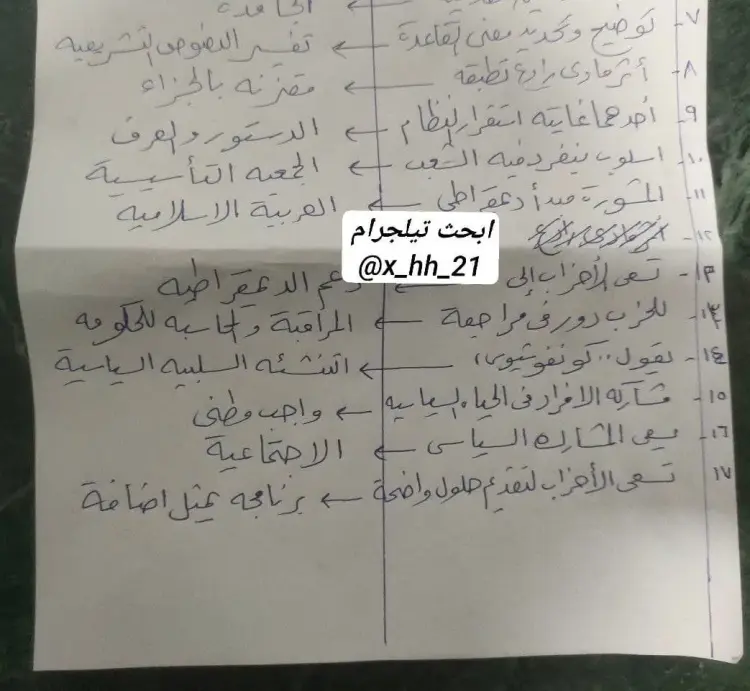 الجامدة
٧- توضيح وتحديد معنى القاعدة ← تفسير النصوص التشريعيه
٨- أثر مادى رادع تطبقه ← مقترنه بالجزاء
٩- أحدهما غايته استقرار النظام ← الدستور والعرف
١٠- اسلوب ينفرد فيه الشعب ← الجمعيه التأسيسية
١١- الشورة مبدأ دعقراطى ← العربية الاسلامية
١٢-
١٣- تسعى الأحزاب إلى ← دعم الدعقراطيه
١٣- للحزب دور فى مراجعة ← المراقبة والمحاسبه للحكومه
١٤- يقول "كونفوشيوس" ← التنشئه السلبيه السياسية
١٥- مشاركه الافراد فى الحياه السياسيه ← واجب وطنى
١٦- المشاركه السياسى ← الاجتماعية
١٧- تسعى الأحزاب لتقديم حلول واضحة ← برنامجه يمثل اضافة
ابحث تيلجرام
@x_hh_21